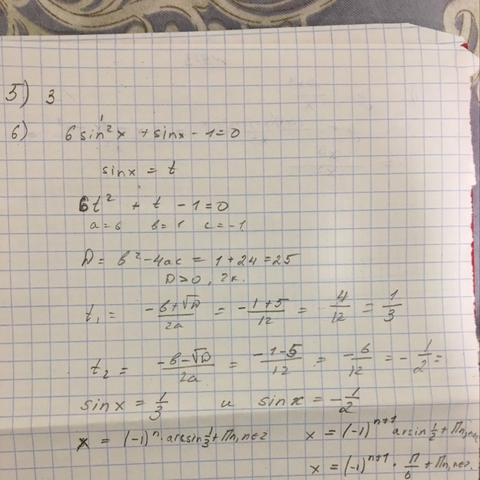 5) 3
6) 6sin²x + sinx - 1 = 0
sinx = t
6t² + t - 1 = 0
a = 6 в = 1 c = -1
D = в² - 4ac = 1 + 24 = 25
D > 0, 2к.
t₁ = (-в+√D)/2a = (-1+5)/12 = 4/12 = 1/3
t₂ = (-в-√D)/2a = (-1-5)/12 = -6/12 = -1/2 =
sinx = 1/3 и sinx = -1/2
x = (-1)ⁿ · arcsin 1/3 + Пn, n∈z x = (-1)ⁿ⁺¹ arsin 1/2 + Пn, n∈z
x = (-1)ⁿ⁺¹ · П/6 + Пn, n∈z.